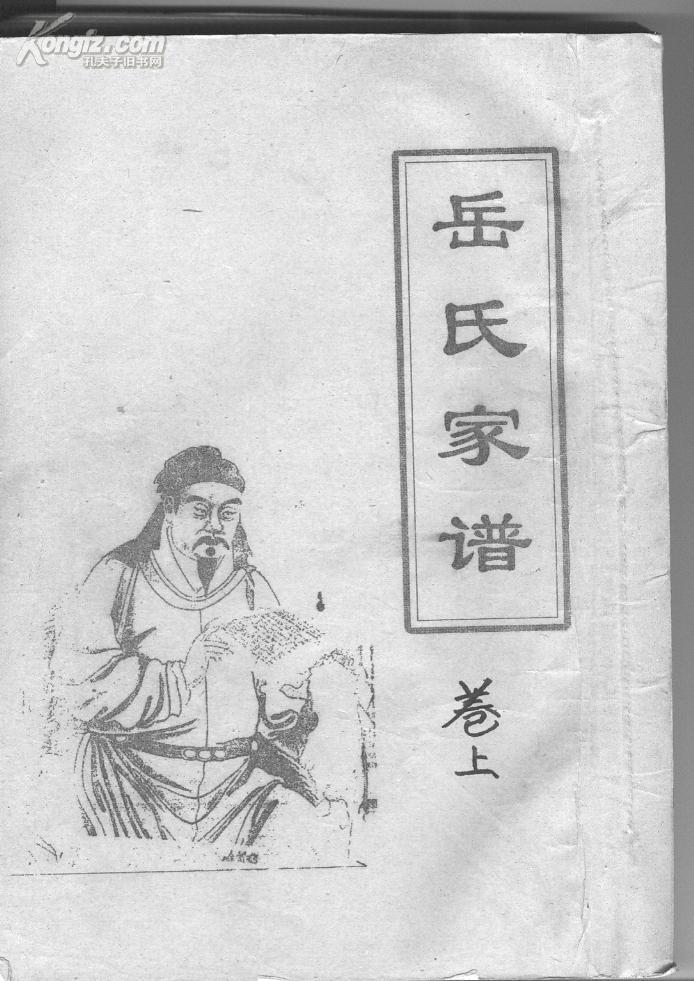 Kongfz.com
孔夫子旧书网
岳氏家谱
卷上